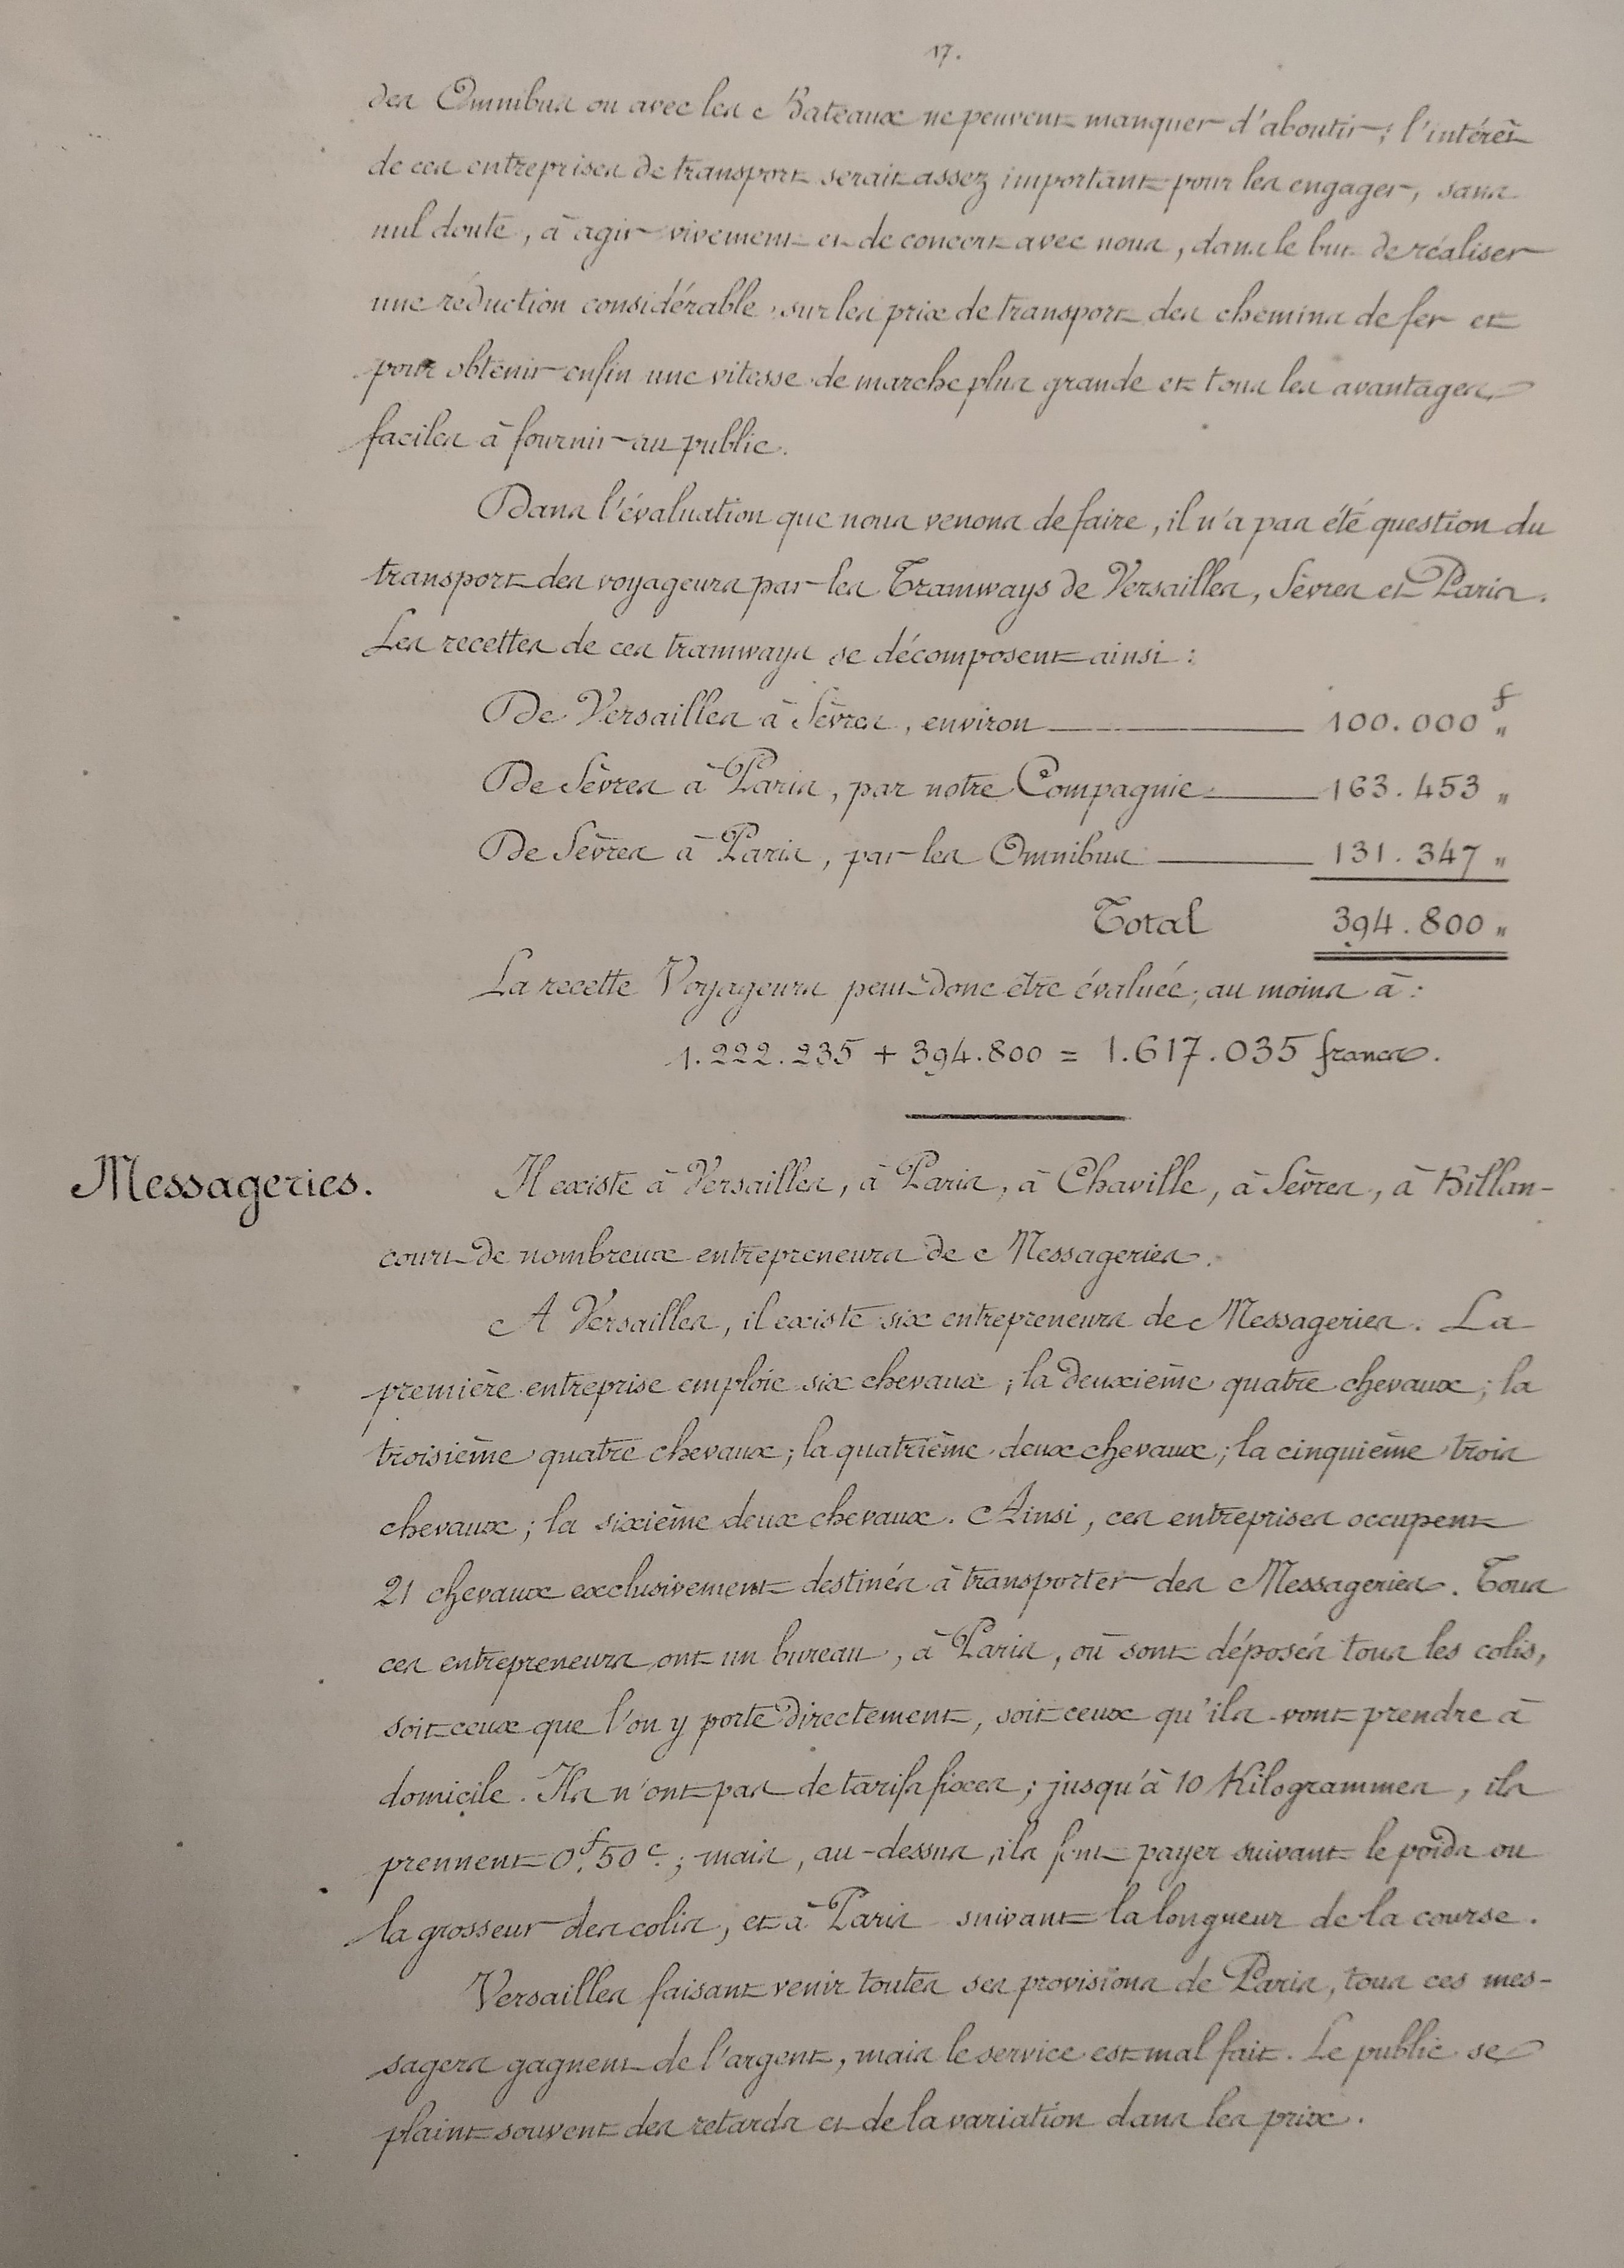 17.
des Omnibus ou avec les Bateaux ne peuvent manquer d'aboutir; l'intérêt
de ces entreprises de transport serait assez important pour les engager, sans
nul doute, à agir vivement et de concert avec nous, dans le but de réaliser
une réduction considérable sur les prix de transport des chemins de fer et
pour obtenir enfin une vitesse de marche plus grande et tous les avantages
faciles à fournir au public.
Dans l'évaluation que nous venons de faire, il n'a pas été question du
transport des voyageurs par les Tramways de Versailles, Sèvres et Paris.
Les recettes de ces tramways se décomposent ainsi :
De Versailles à Sèvres, environ 100.000 f "
De Sèvres à Paris, par notre Compagnie 163.453 "
De Sèvres à Paris, par les Omnibus 131.347 "
Total 394.800 "
La recette Voyageurs peut donc être évaluée, au moins à :
1.222.235 + 394.800 = 1.617.035 francs.
Messageries. Il existe à Versailles, à Paris, à Chaville, à Sèvres, à Billan-
court de nombreux entrepreneurs de Messageries.
A Versailles, il existe six entrepreneurs de Messageries. La
première entreprise emploie six chevaux; la deuxième quatre chevaux; la
troisième quatre chevaux; la quatrième deux chevaux; la cinquième trois
chevaux; la sixième deux chevaux. Ainsi, ces entreprises occupent
21 chevaux exclusivement destinés à transporter des Messageries. Tous
ces entrepreneurs ont un bureau, à Paris, où sont déposés tous les colis,
soit ceux que l'on y porte directement, soit ceux qu'ils vont prendre à
domicile. Ils n'ont pas de tarifs fixes; jusqu'à 10 Kilogrammes, ils
prennent 0f.50c.; mais, au-dessus, ils font payer suivant le poids ou
la grosseur des colis, et à Paris suivant la longueur de la course.
Versailles faisant venir toutes ses provisions de Paris, tous ces mes-
sagers gagnent de l'argent, mais le service est mal fait. Le public se
plaint souvent des retards et de la variation dans les prix.